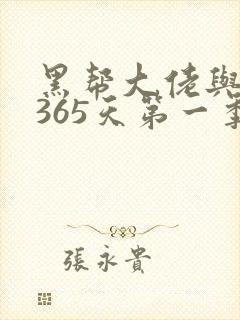 黑帮大佬與
365天第一季
張永貴